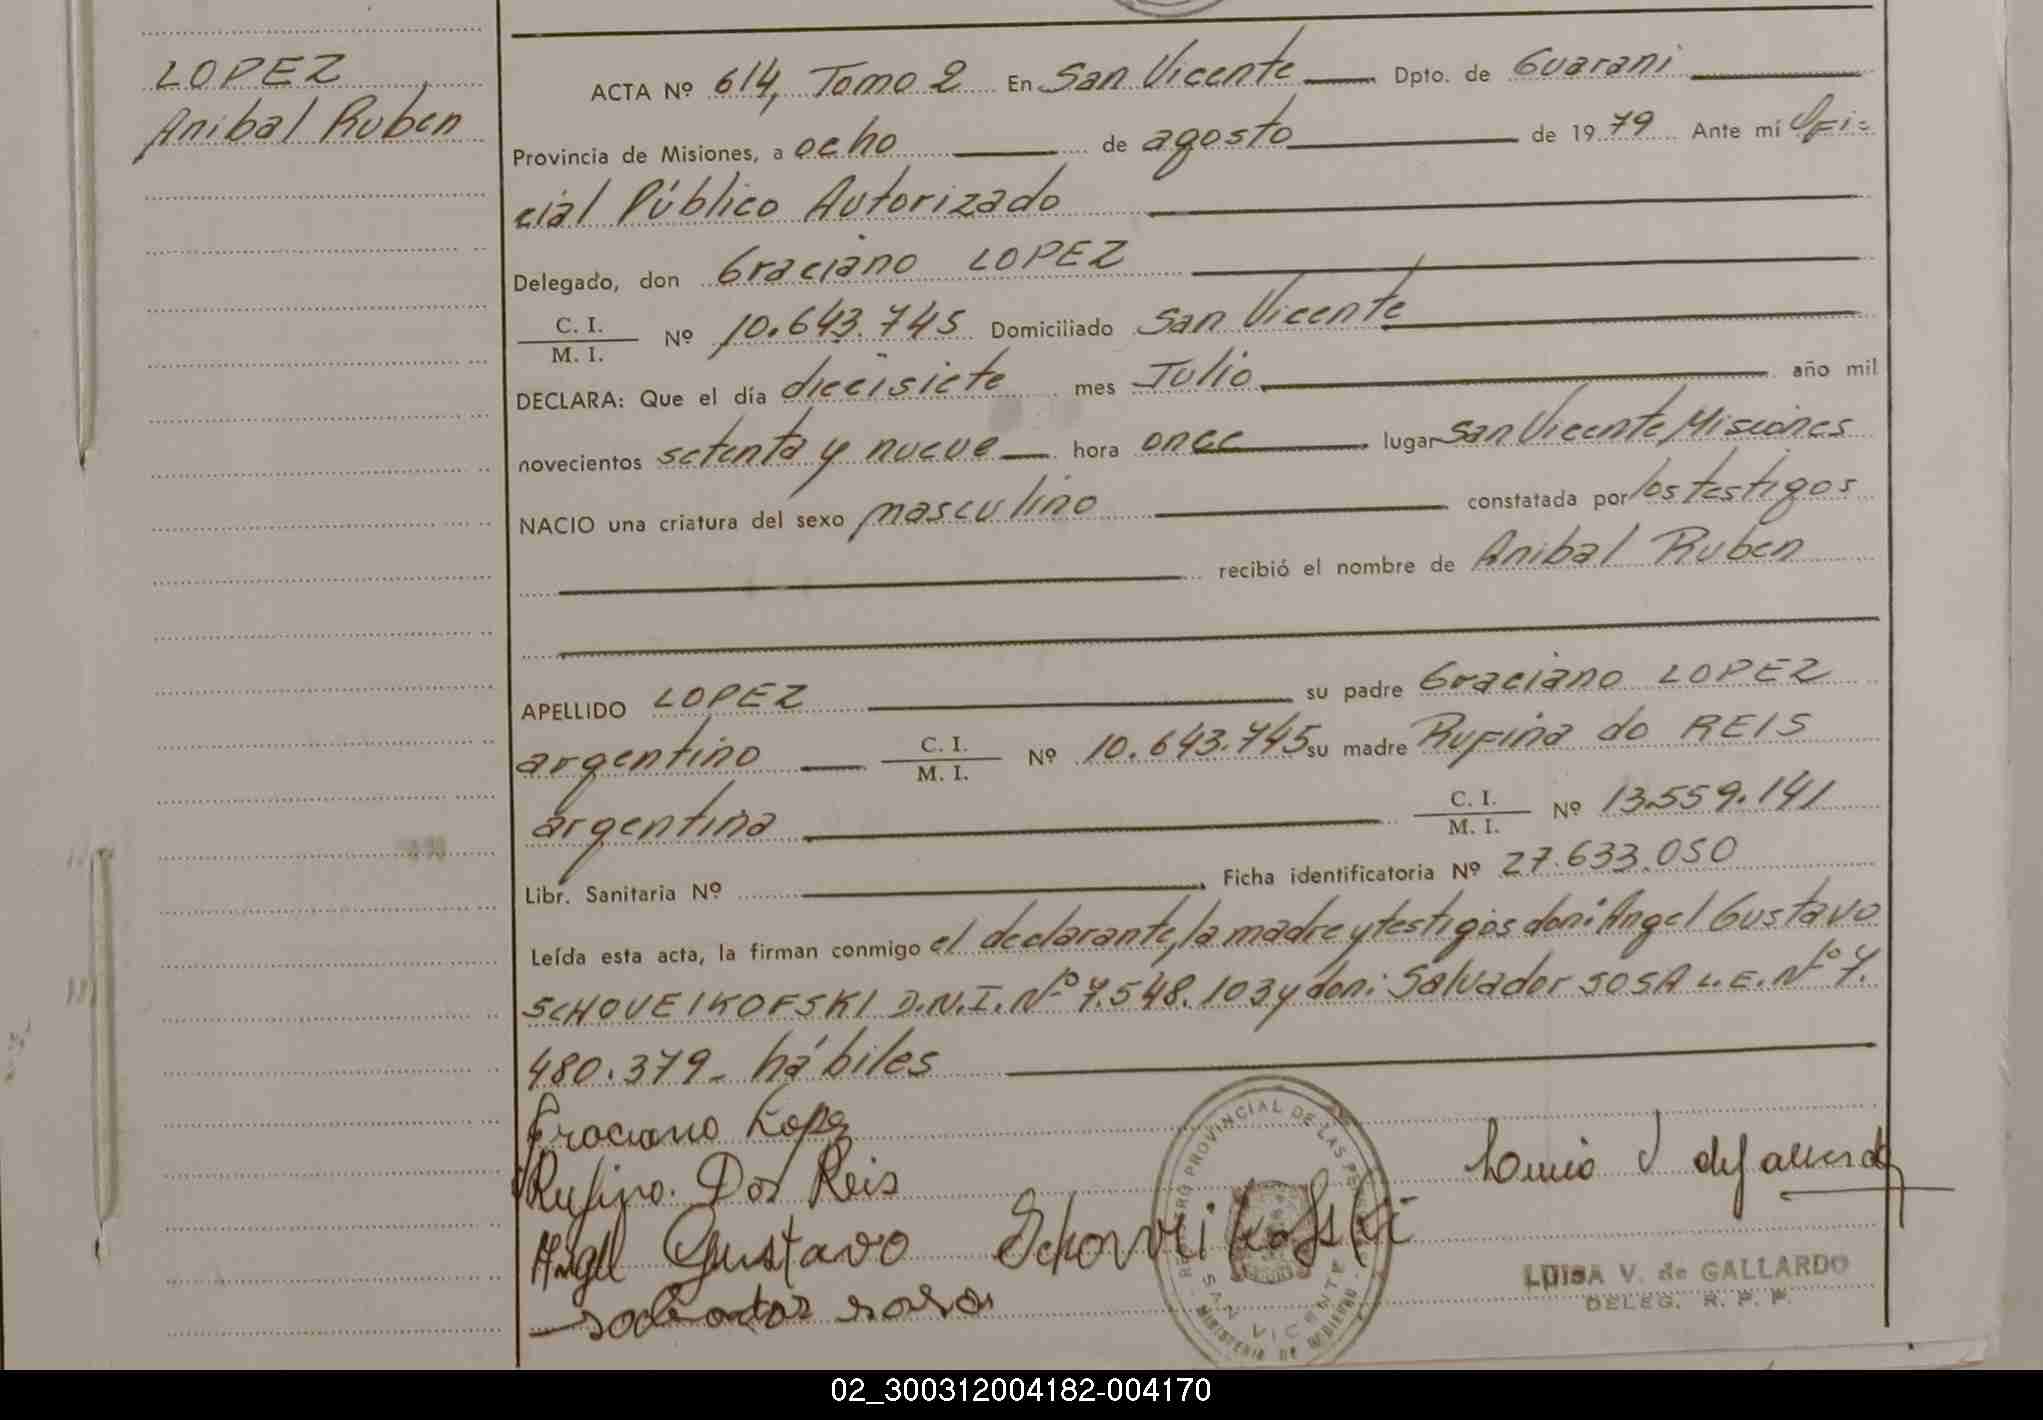 LOPEZ
Anibal Ruben
ACTA Nº 614, Tomo 2 En San Vicente Dpto. de Guarani
Provincia de Misiones, a ocho de agosto de 1979 Ante mí Ofi=
cial Público Autorizado
Delegado, don Graciano LOPEZ
C. I.
M. I. Nº 10.643.745 Domiciliado San Vicente
DECLARA: Que el día diecisiete mes Julio año mil
novecientos setenta y nueve hora once lugar San Vicente, Misiones
NACIO una criatura del sexo masculino constatada por los testigos
recibió el nombre de Anibal Ruben
APELLIDO LOPEZ su padre Graciano LOPEZ
argentino C. I.
M. I. Nº 10.643.745 su madre Rufina do REIS
argentina C. I.
M. I. Nº 13.559.141
Libr. Sanitaria Nº Ficha identificatoria Nº 27.633.050
Leída esta acta, la firman conmigo el declarante, la madre y testigos don: Angel Gustavo
SCHOVEIKOFSKI D.N.I. Nº 7.548.103 y don: Salvador SOSA L.E. Nº 7.
480.379_ hábiles
Graciano Lopez
Rufina. Dos Reis
Angel Gustavo
Salvador sosa
REGISTRO PROVINCIAL DE LAS
SAN VICENTE
MINISTERIO DE GOBIERNO
LUISA V. de GALLARDO
DELEG. R. P. P.
02_300312004182-004170